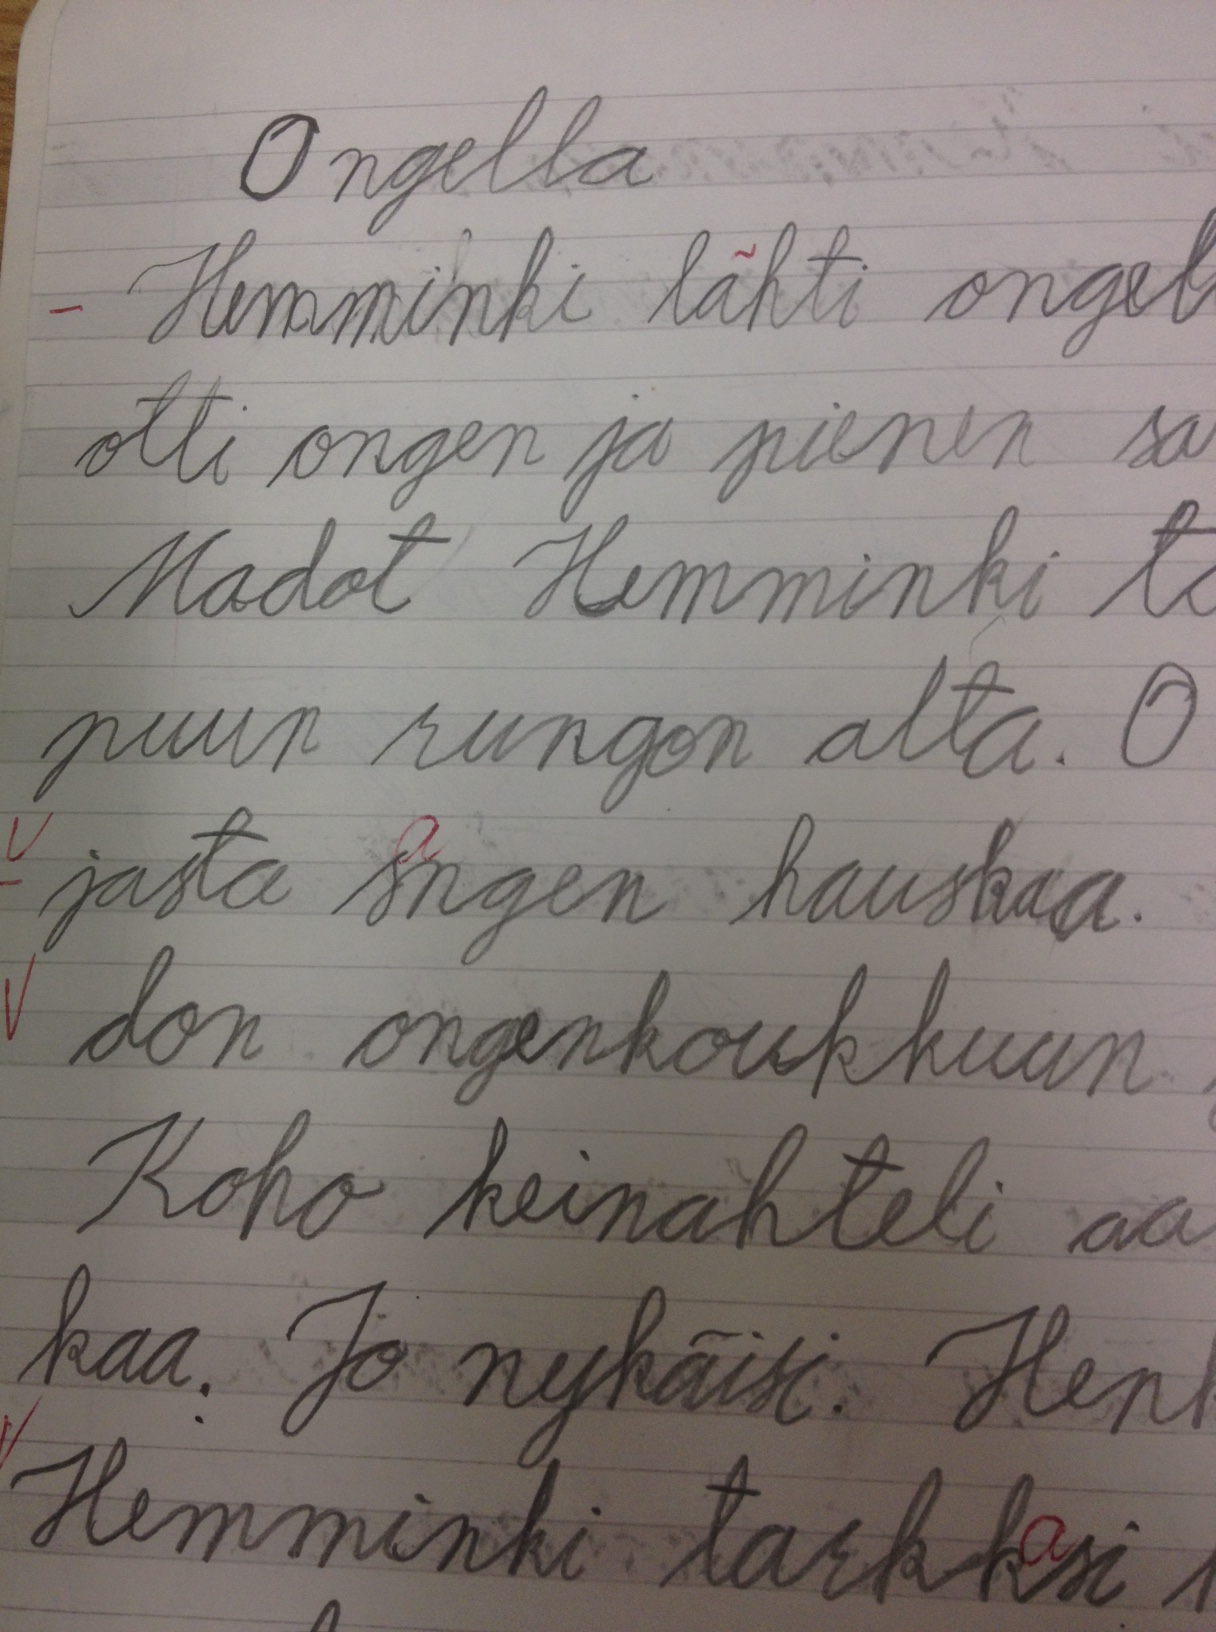 Ongella
Hemminki lähti ongel
otti ongen ja pienen sa
Madot Hemminki
puun rungon alta. O
jasta sangen hauskaa.
don ongenkoukkuun
Koho keinahteli aa
kaa. Jo nykäisi. Henk
Hemminki tarkkasi